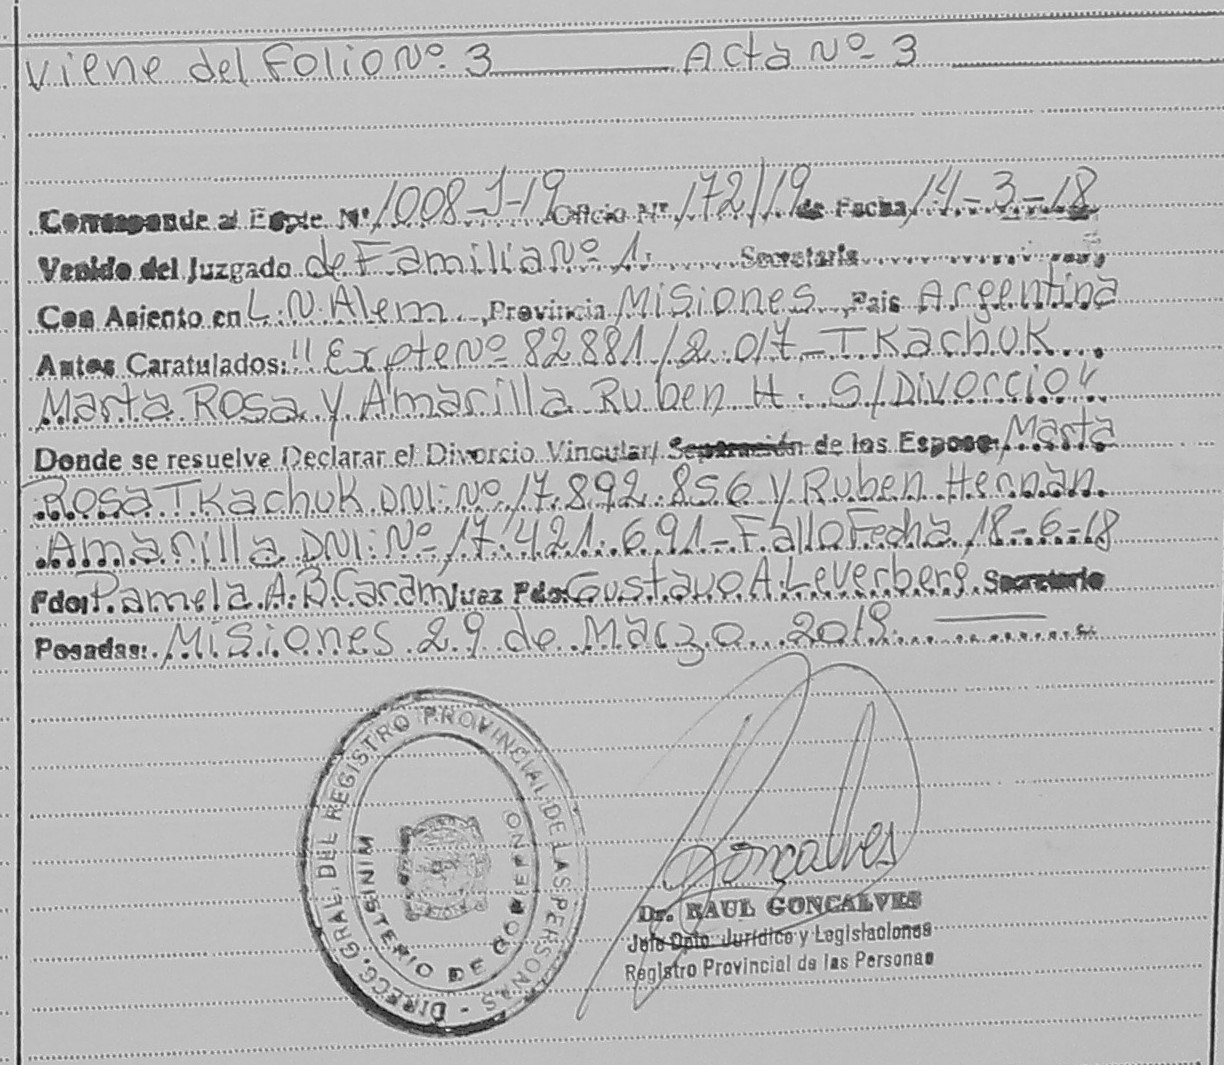 Viene del Folio Nº 3 Acta Nº 3
Corresponde al Expte. Nº 1008-J-19 Oficio Nº 172/19 de Fecha 14-3-18
Venido del Juzgado de Familia Nº 1. Secretaria
Con Asiento en L.N. Alem, Provincia Misiones, Pais Argentina
Autos Caratulados: "Expte Nº 82881/2.017-TKachuK
Marta Rosa y Amarilla Ruben H. S/Divorcio"
Donde se resuelve Declarar el Divorcio Vincular/ Separación de los Esposos, Marta
Rosa TKachuK DNI: Nº 17.892.856 y Ruben Hernan
Amarilla DNI: Nº 17.421.691-Fallo Fecha 18-6-18
Fdo: Pamela A.B. Caram Juez Fdo: Gustavo A. Leverberg Secretario
Posadas: Misiones 29 de Marzo 2019
DIRECC. GRAL. DEL REGISTRO PROVINCIAL DE LAS PERSONAS -
MINISTERIO DE GOBIERNO
Goncalves
Dr. RAUL GONCALVES
Jefe Dpto. Jurídico y Legislaciones
Registro Provincial de las Personas